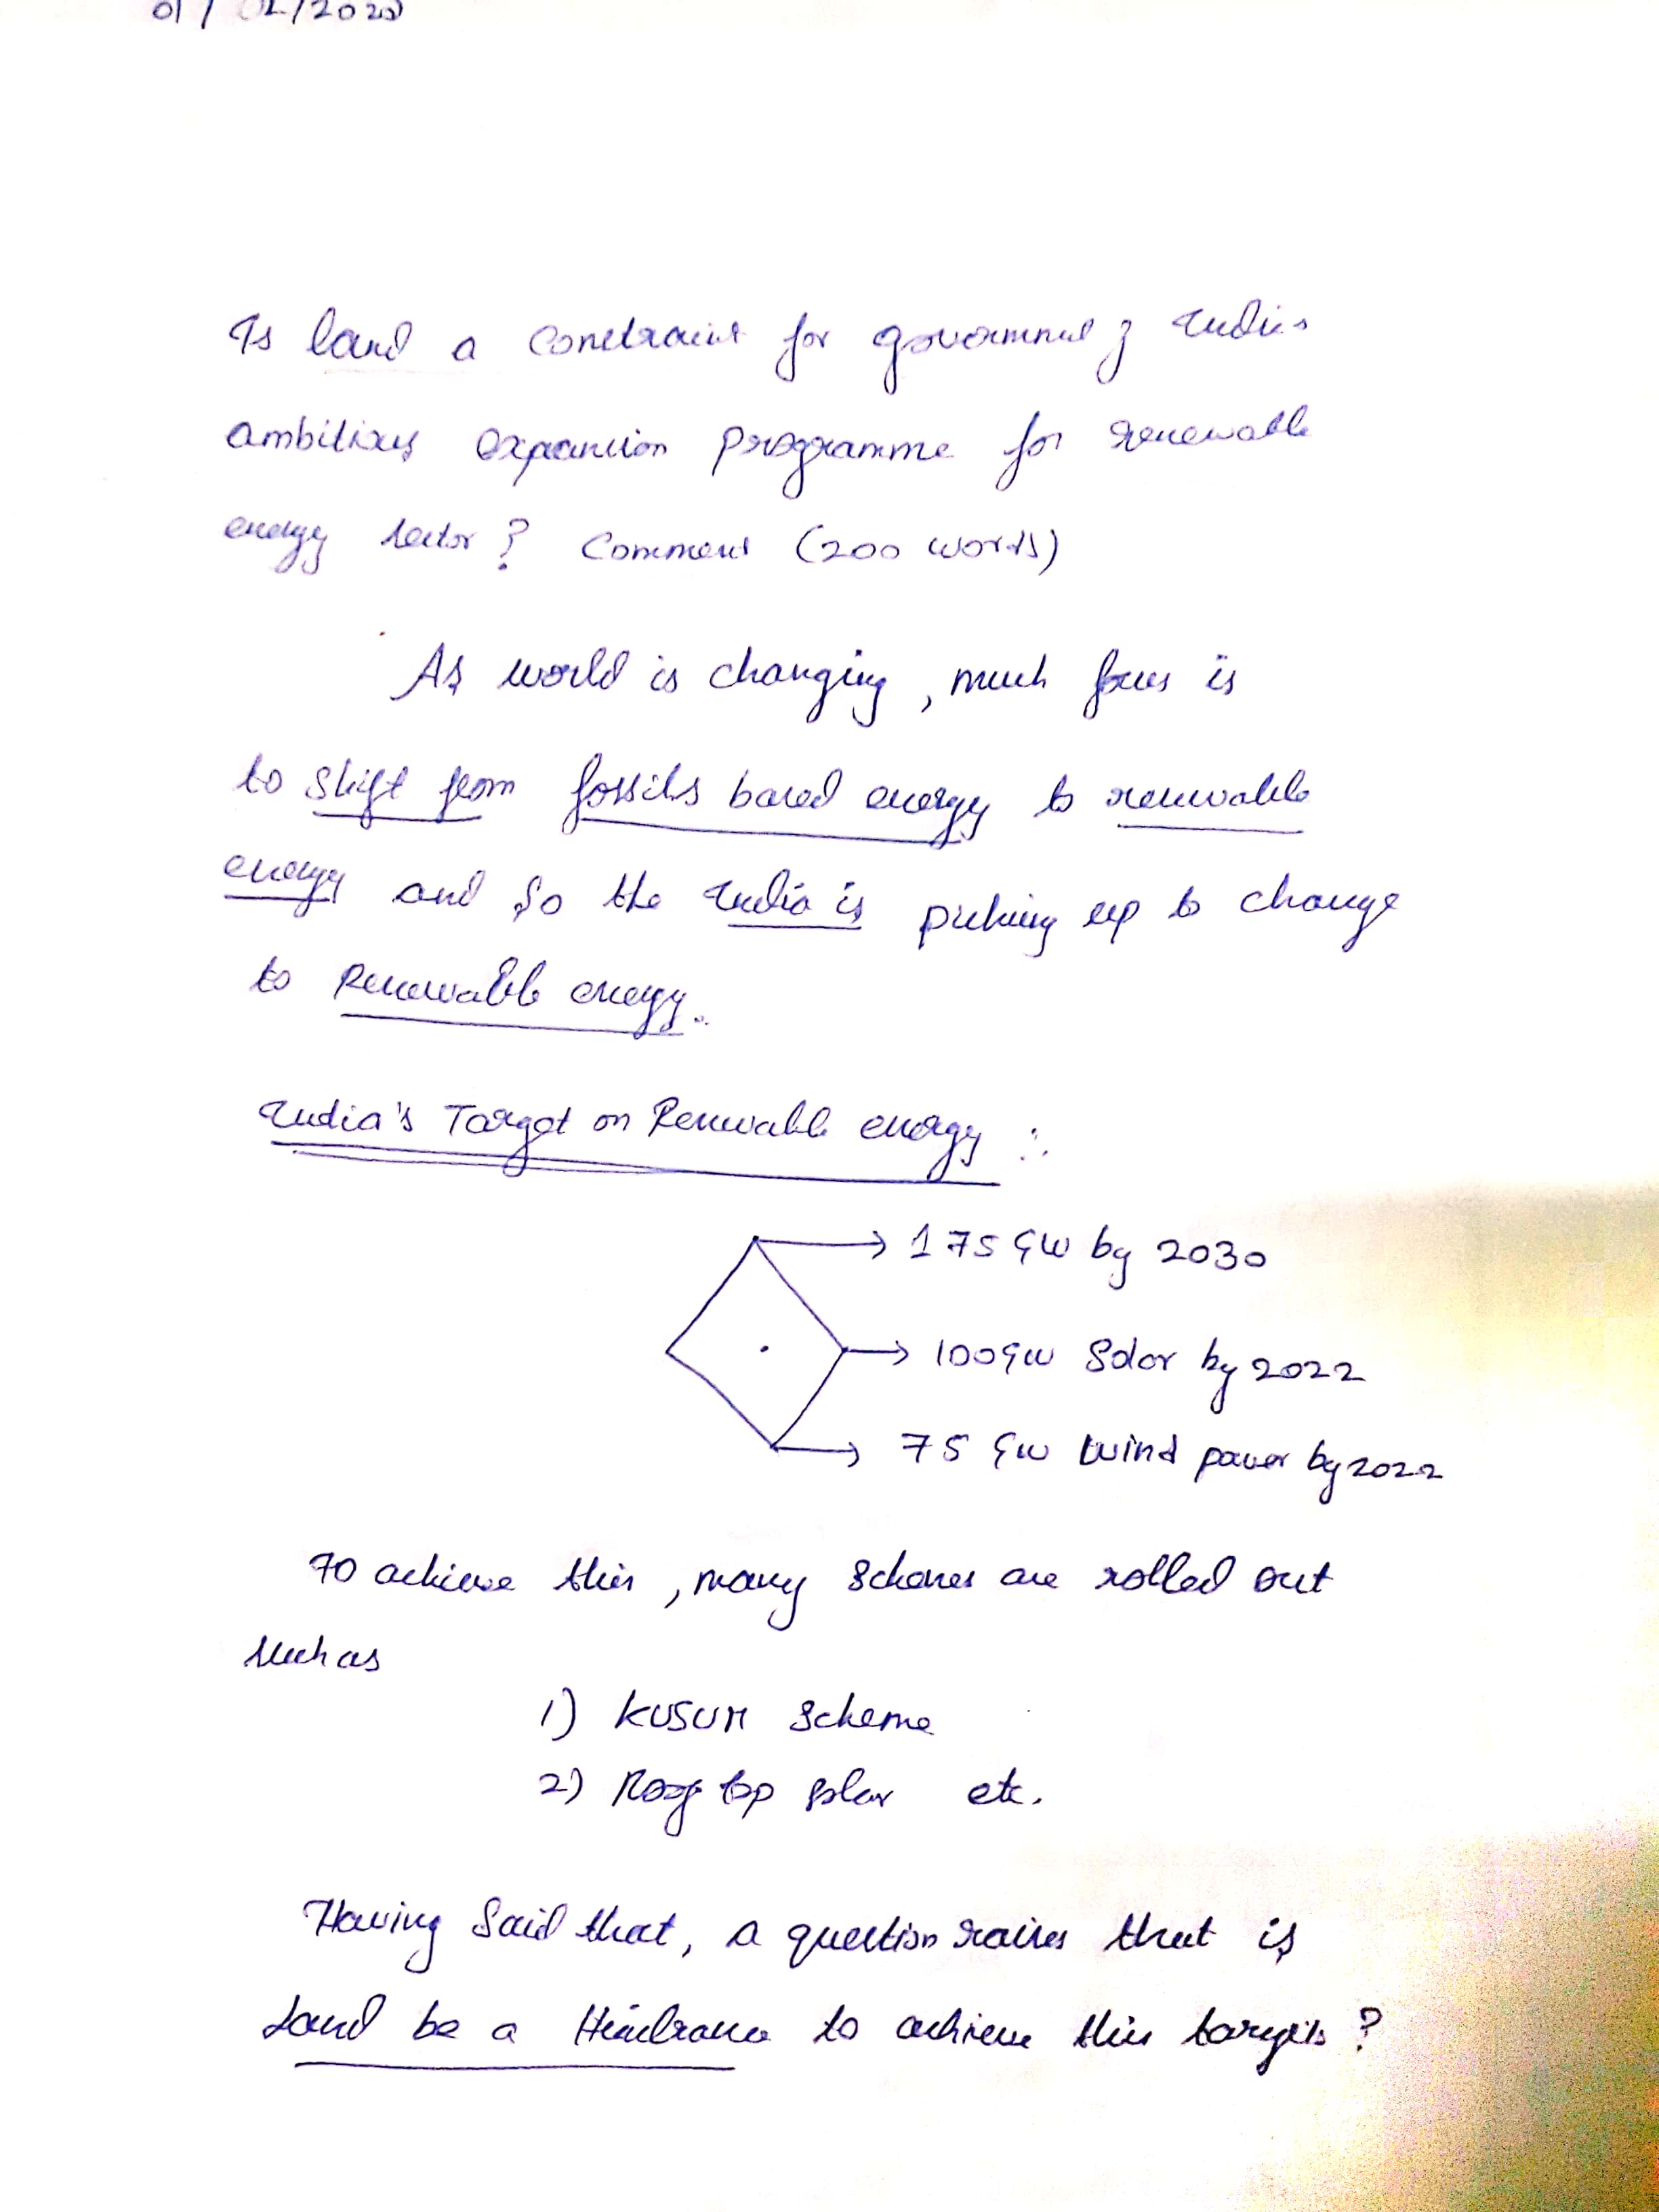 01/02/2020
Is land a constraint for government of India's
ambitious expansion programme for renewable
energy sector? Comment (200 words)
As world is changing, much focus is
to shift from fossils based energy to renewable
energy and so the India is picking up to change
to Renewable energy.
India's Target on Renewable energy :-
175 GW by 2030
100 GW Solar by 2022
75 GW Wind power by 2022
To achieve this, many schemes are rolled out
such as
1) KUSUM scheme
2) Roof top solar etc.
Having said that, a question raises that is
Land be a Hindrance to achieve this targets?